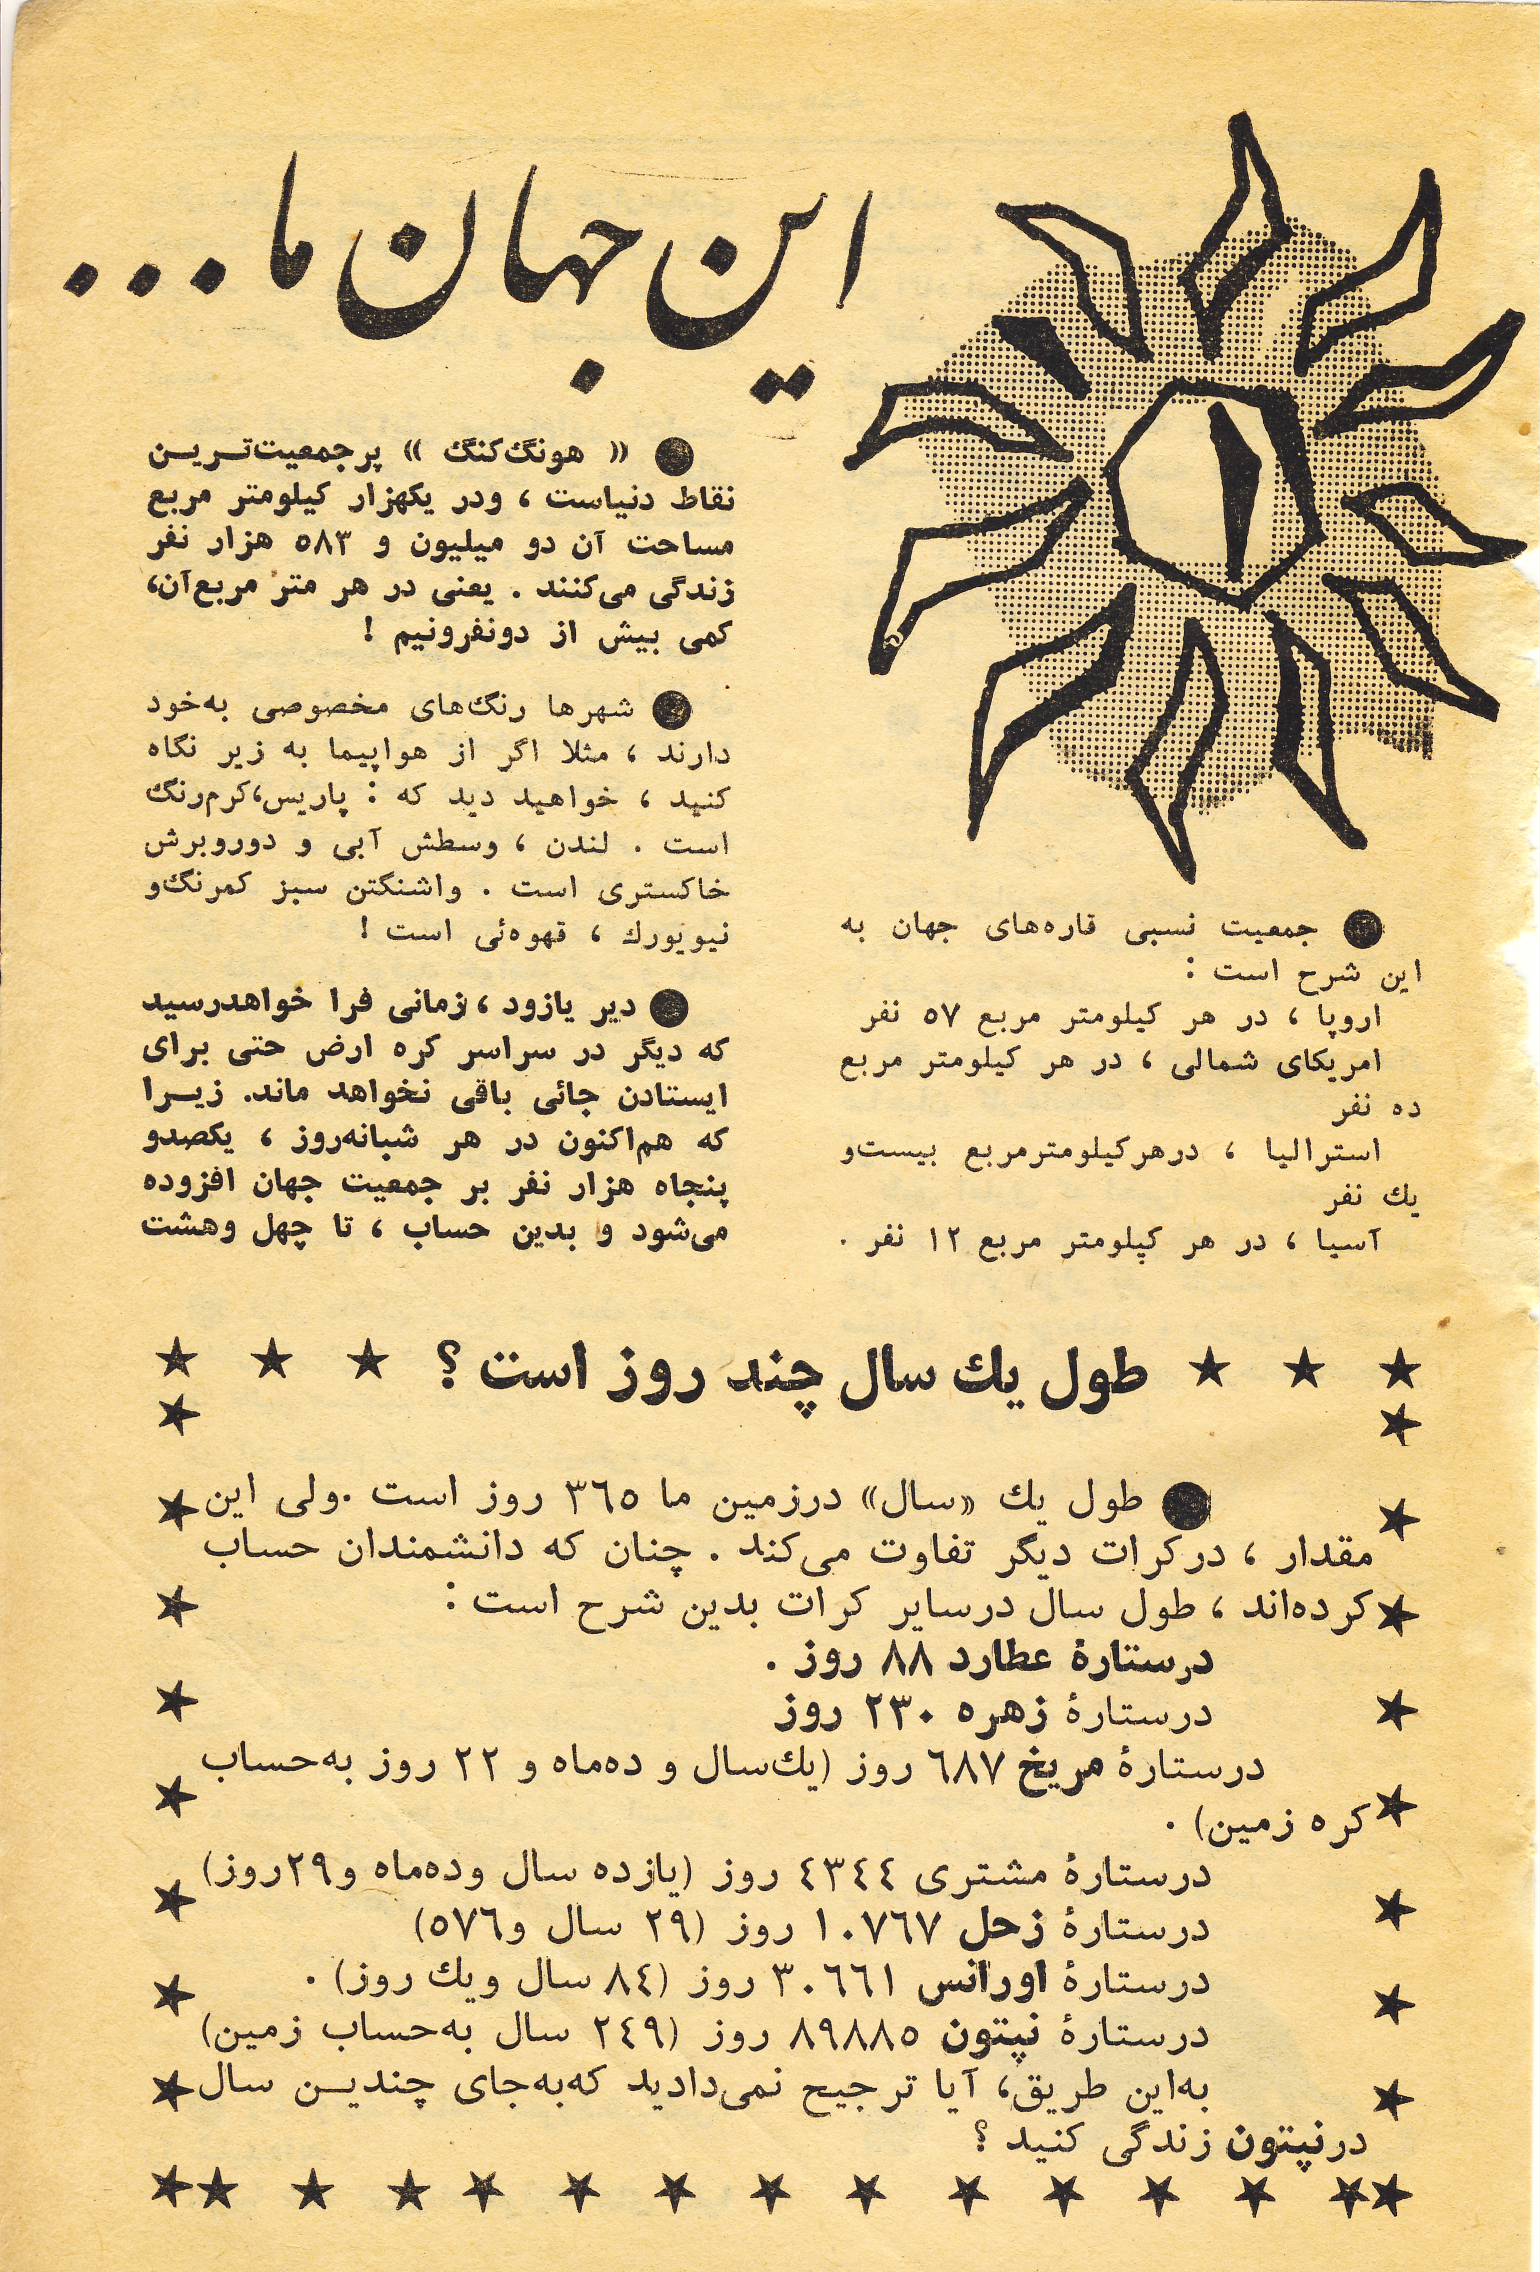 این جهان ما...
● جمعیت نسبی قاره‌های جهان به
این شرح است :
اروپا ، در هر کیلومتر مربع ٥٧ نفر
امریکای شمالی ، در هر کیلومتر مربع
ده نفر
استرالیا ، درهرکیلومترمربع بیست‌و
یك نفر
آسیا ، در هر کیلومتر مربع ١٢ نفر .
● « هونگ‌کنگ » پرجمعیت‌تریـن
نقاط دنیاست ، ودر یکهزار کیلومتر مربع
مساحت آن دو میلیون و ٥٨٣ هزار نفر
زندگی می‌کنند . یعنی در هر متر مربع‌آن،
کمی بیش از دونفرونیم !
● شهرها رنگ‌های مخصوصی به‌خود
دارند ، مثلا اگر از هواپیما به زیر نگاه
کنید ، خواهید دید که : پاریس،کرم‌رنگ
است . لندن ، وسطش آبی و دوروبرش
خاکستری است . واشنگتن سبز کمرنگ‌و
نیویورك ، قهوه‌ئی است !
● دیر یازود ، زمانی فرا خواهدرسید
که دیگر در سراسر کره ارض حتی برای
ایستادن جائی باقی نخواهد ماند. زیـرا
که هم‌اکنون در هر شبانه‌روز ، یکصدو
پنجاه هزار نفر بر جمعیت جهان افزوده
می‌شود و بدین حساب ، تا چهل وهشت
★ ★ ★ طول یك سال چند روز است ؟ ★ ★ ★
● طول یك «سال» درزمین ما ٣٦٥ روز است .ولی این
مقدار ، درکرات دیگر تفاوت می‌کند . چنان که دانشمندان حساب
کرده‌اند ، طول سال درسایر کرات بدین شرح است :
درستارهٔ عطارد ٨٨ روز .
درستارهٔ زهره ٢٣٠ روز
درستارهٔ مریخ ٦٨٧ روز (یك‌سال و ده‌ماه و ٢٢ روز به‌حساب
کره زمین) .
درستارهٔ مشتری ٤٣٤٤ روز (یازده سال وده‌ماه و٢٩روز)
درستارهٔ زحل ١٠٧٦٧ روز (٢٩ سال و٥٧٦)
درستارهٔ اورانس ٣٠٦٦١ روز (٨٤ سال ویك روز) .
درستارهٔ نپتون ٨٩٨٨٥ روز (٢٤٩ سال به‌حساب زمین)
به‌این طریق، آیا ترجیح نمی‌دادید که‌به‌جای چندیـن سال
درنپتون زندگی کنید ؟